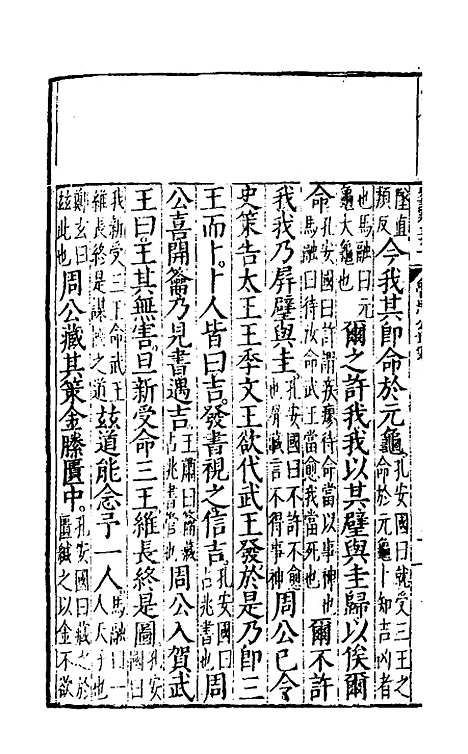 墜直類反今我其即命於元龜孔安國曰就受三王之命於元龜卜知吉凶者
也馬融曰元龜大龜也爾之許我我以其璧與圭歸以俟爾
命孔安國曰許謂疾瘳待命當以事神也馬融曰待汝命武王當愈我當死也爾不許
我我乃屏璧與圭孔安國曰不許不愈也屏藏言不得事神周公已令
史策告太王王季文王欲代武王發於是乃即三
王而卜。卜人皆曰吉。發書視之信吉。孔安國曰占兆書也周
公喜開籥乃見書遇吉。王肅曰籥藏占兆書管也周公入賀武
王曰。王其無害。旦新受命三王。維長終是圖孔安國曰
我新受三王命武王維長終是謀周之道茲道能念予一人馬融曰一人天子也
鄭玄曰茲此也周公藏其策金縢匱中。孔安國曰藏之於匱緘之以金不欲